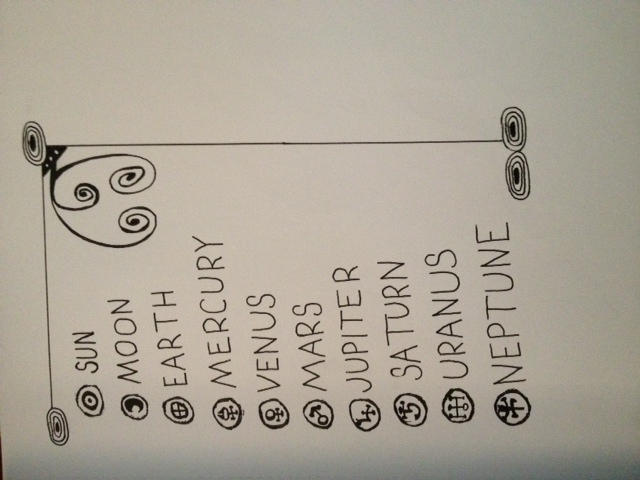 SUN
MOON
EARTH
MERCURY
VENUS
MARS
JUPITER
SATURN
URANUS
NEPTUNE